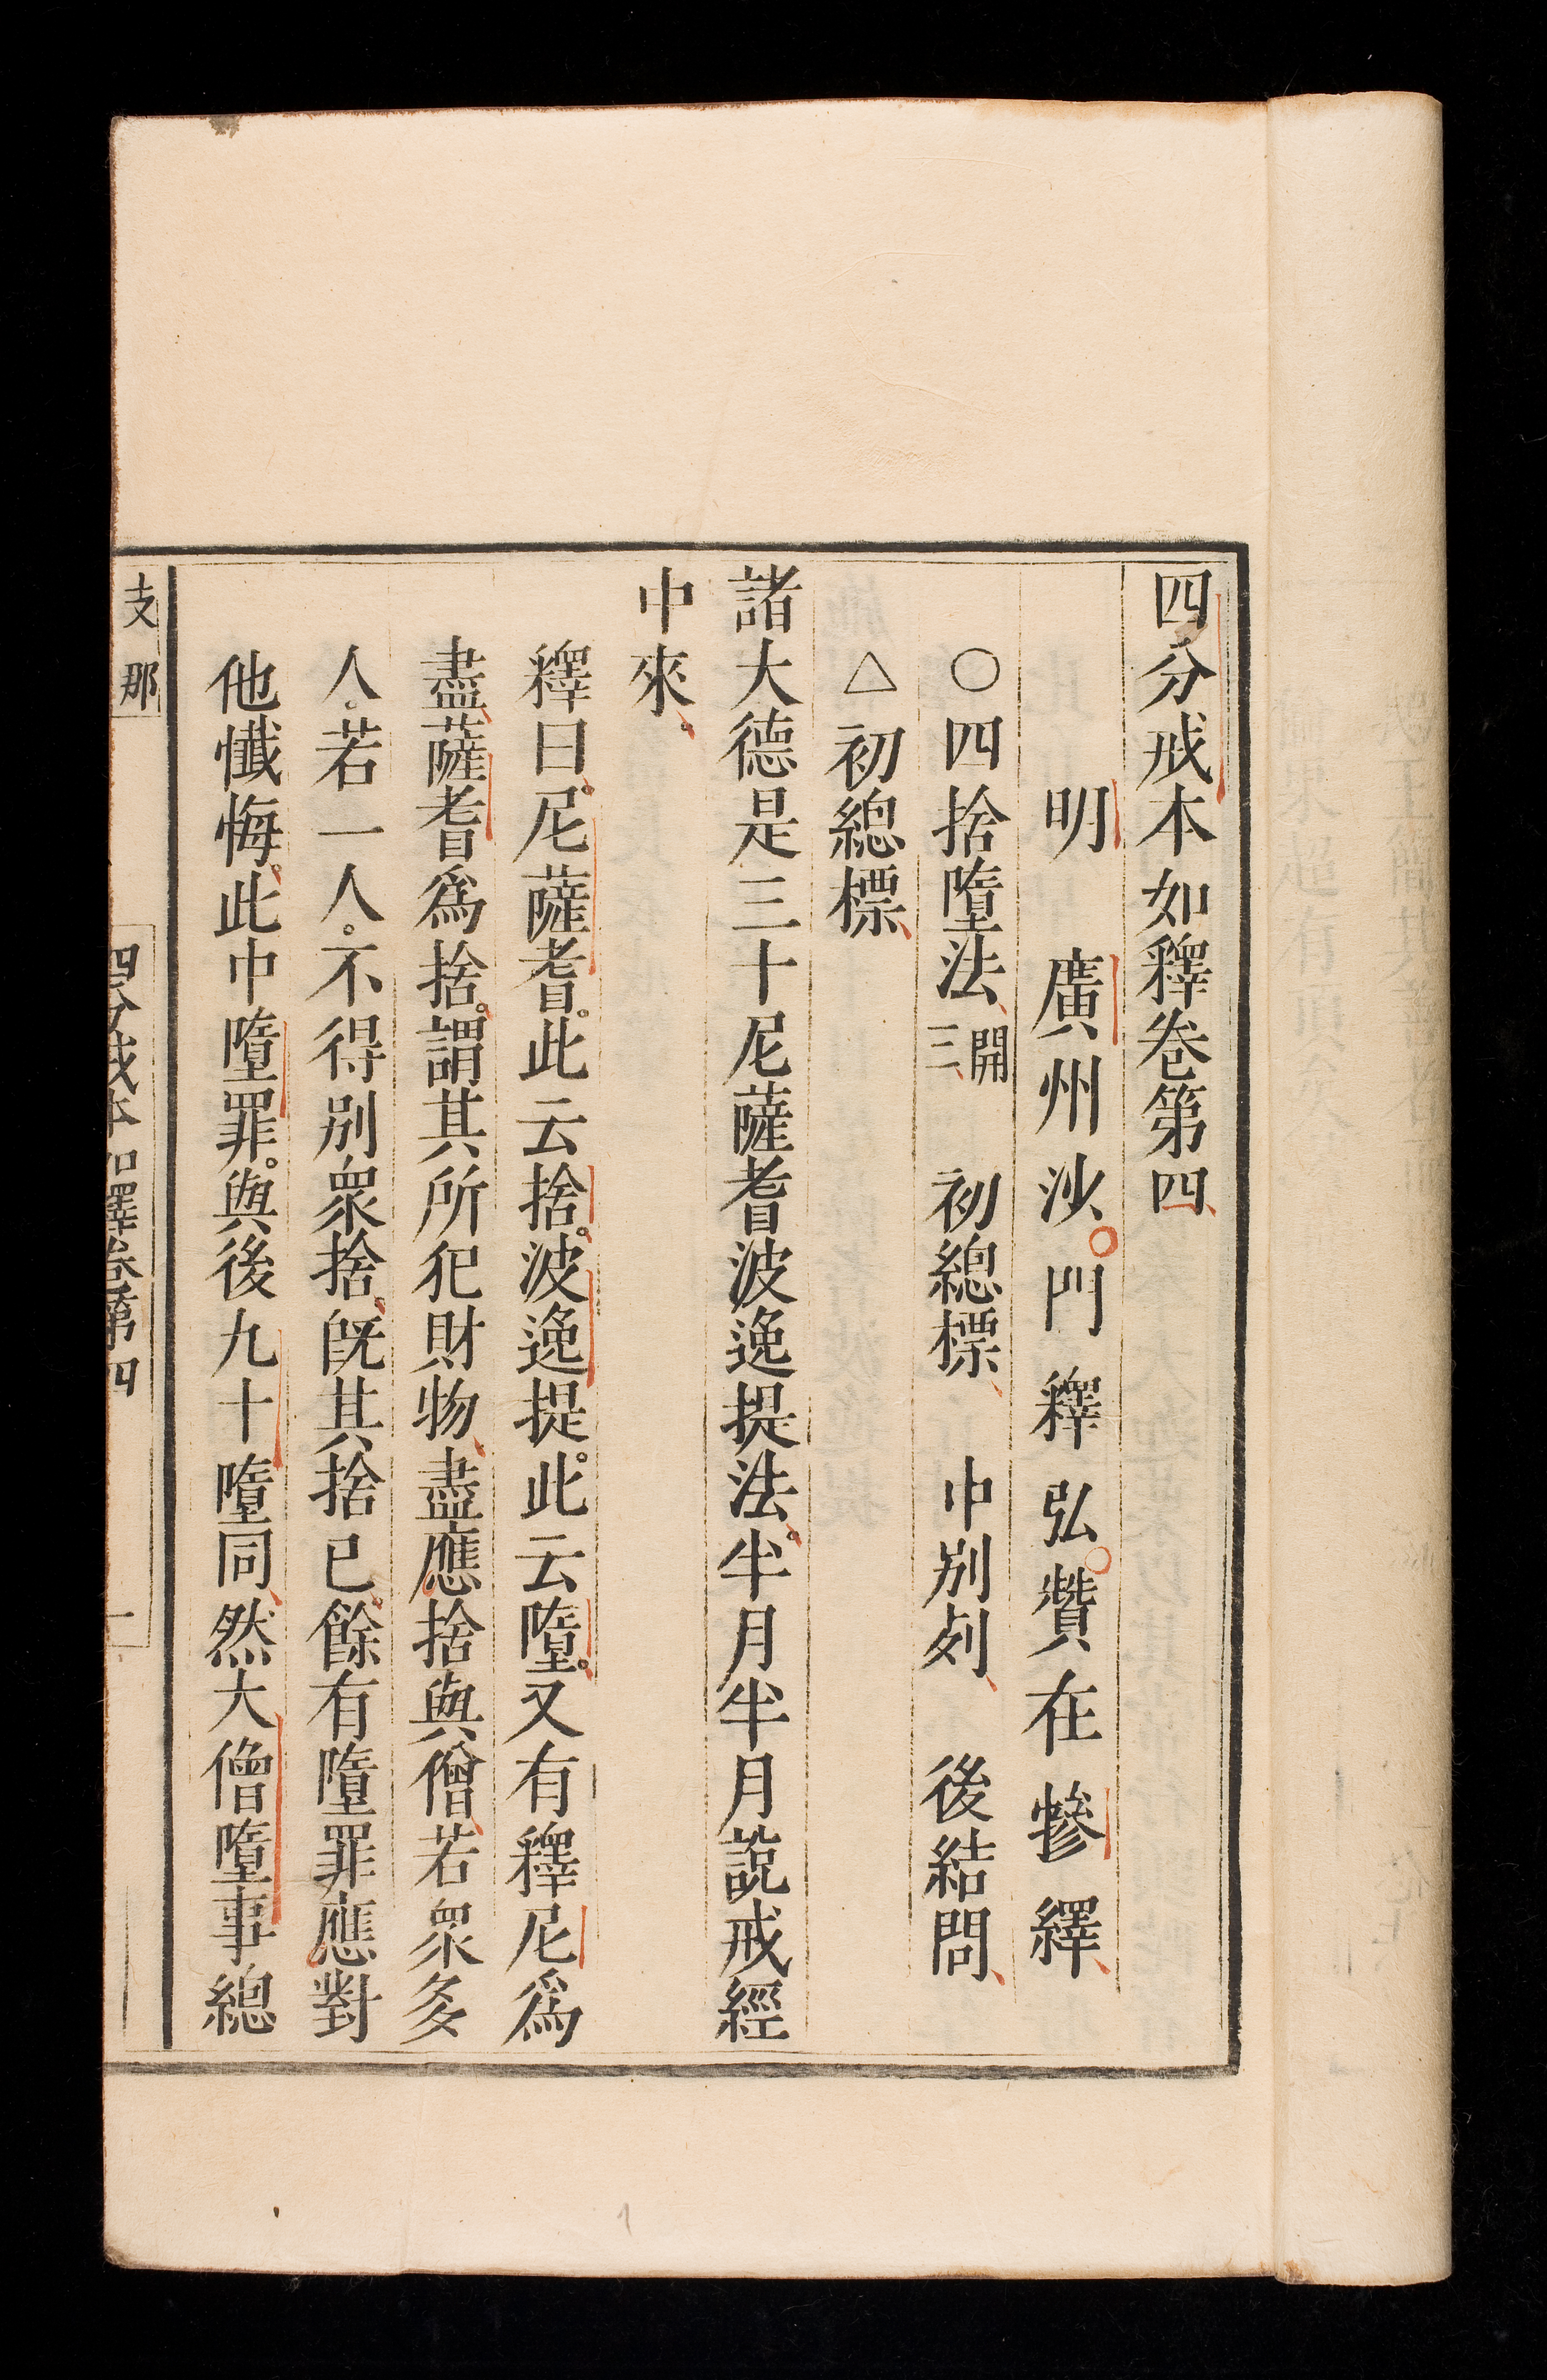 四分戒本如釋卷第四
明 廣州沙門釋弘贊在犙繹
○四捨墮法開三 初總標 中別列 後結問
△初總標
諸大德是三十尼薩耆波逸提法半月半月說戒經
中來
釋曰尼薩耆此云捨波逸提此云墮又有釋尼爲
盡薩耆爲捨謂其所犯財物盡應捨與僧若眾多
人若一人不得別眾捨旣其捨已餘有墮罪應對
他懺悔此中墮罪與後九十墮同然大僧墮事總
支那
四分戒本如釋卷第四
一